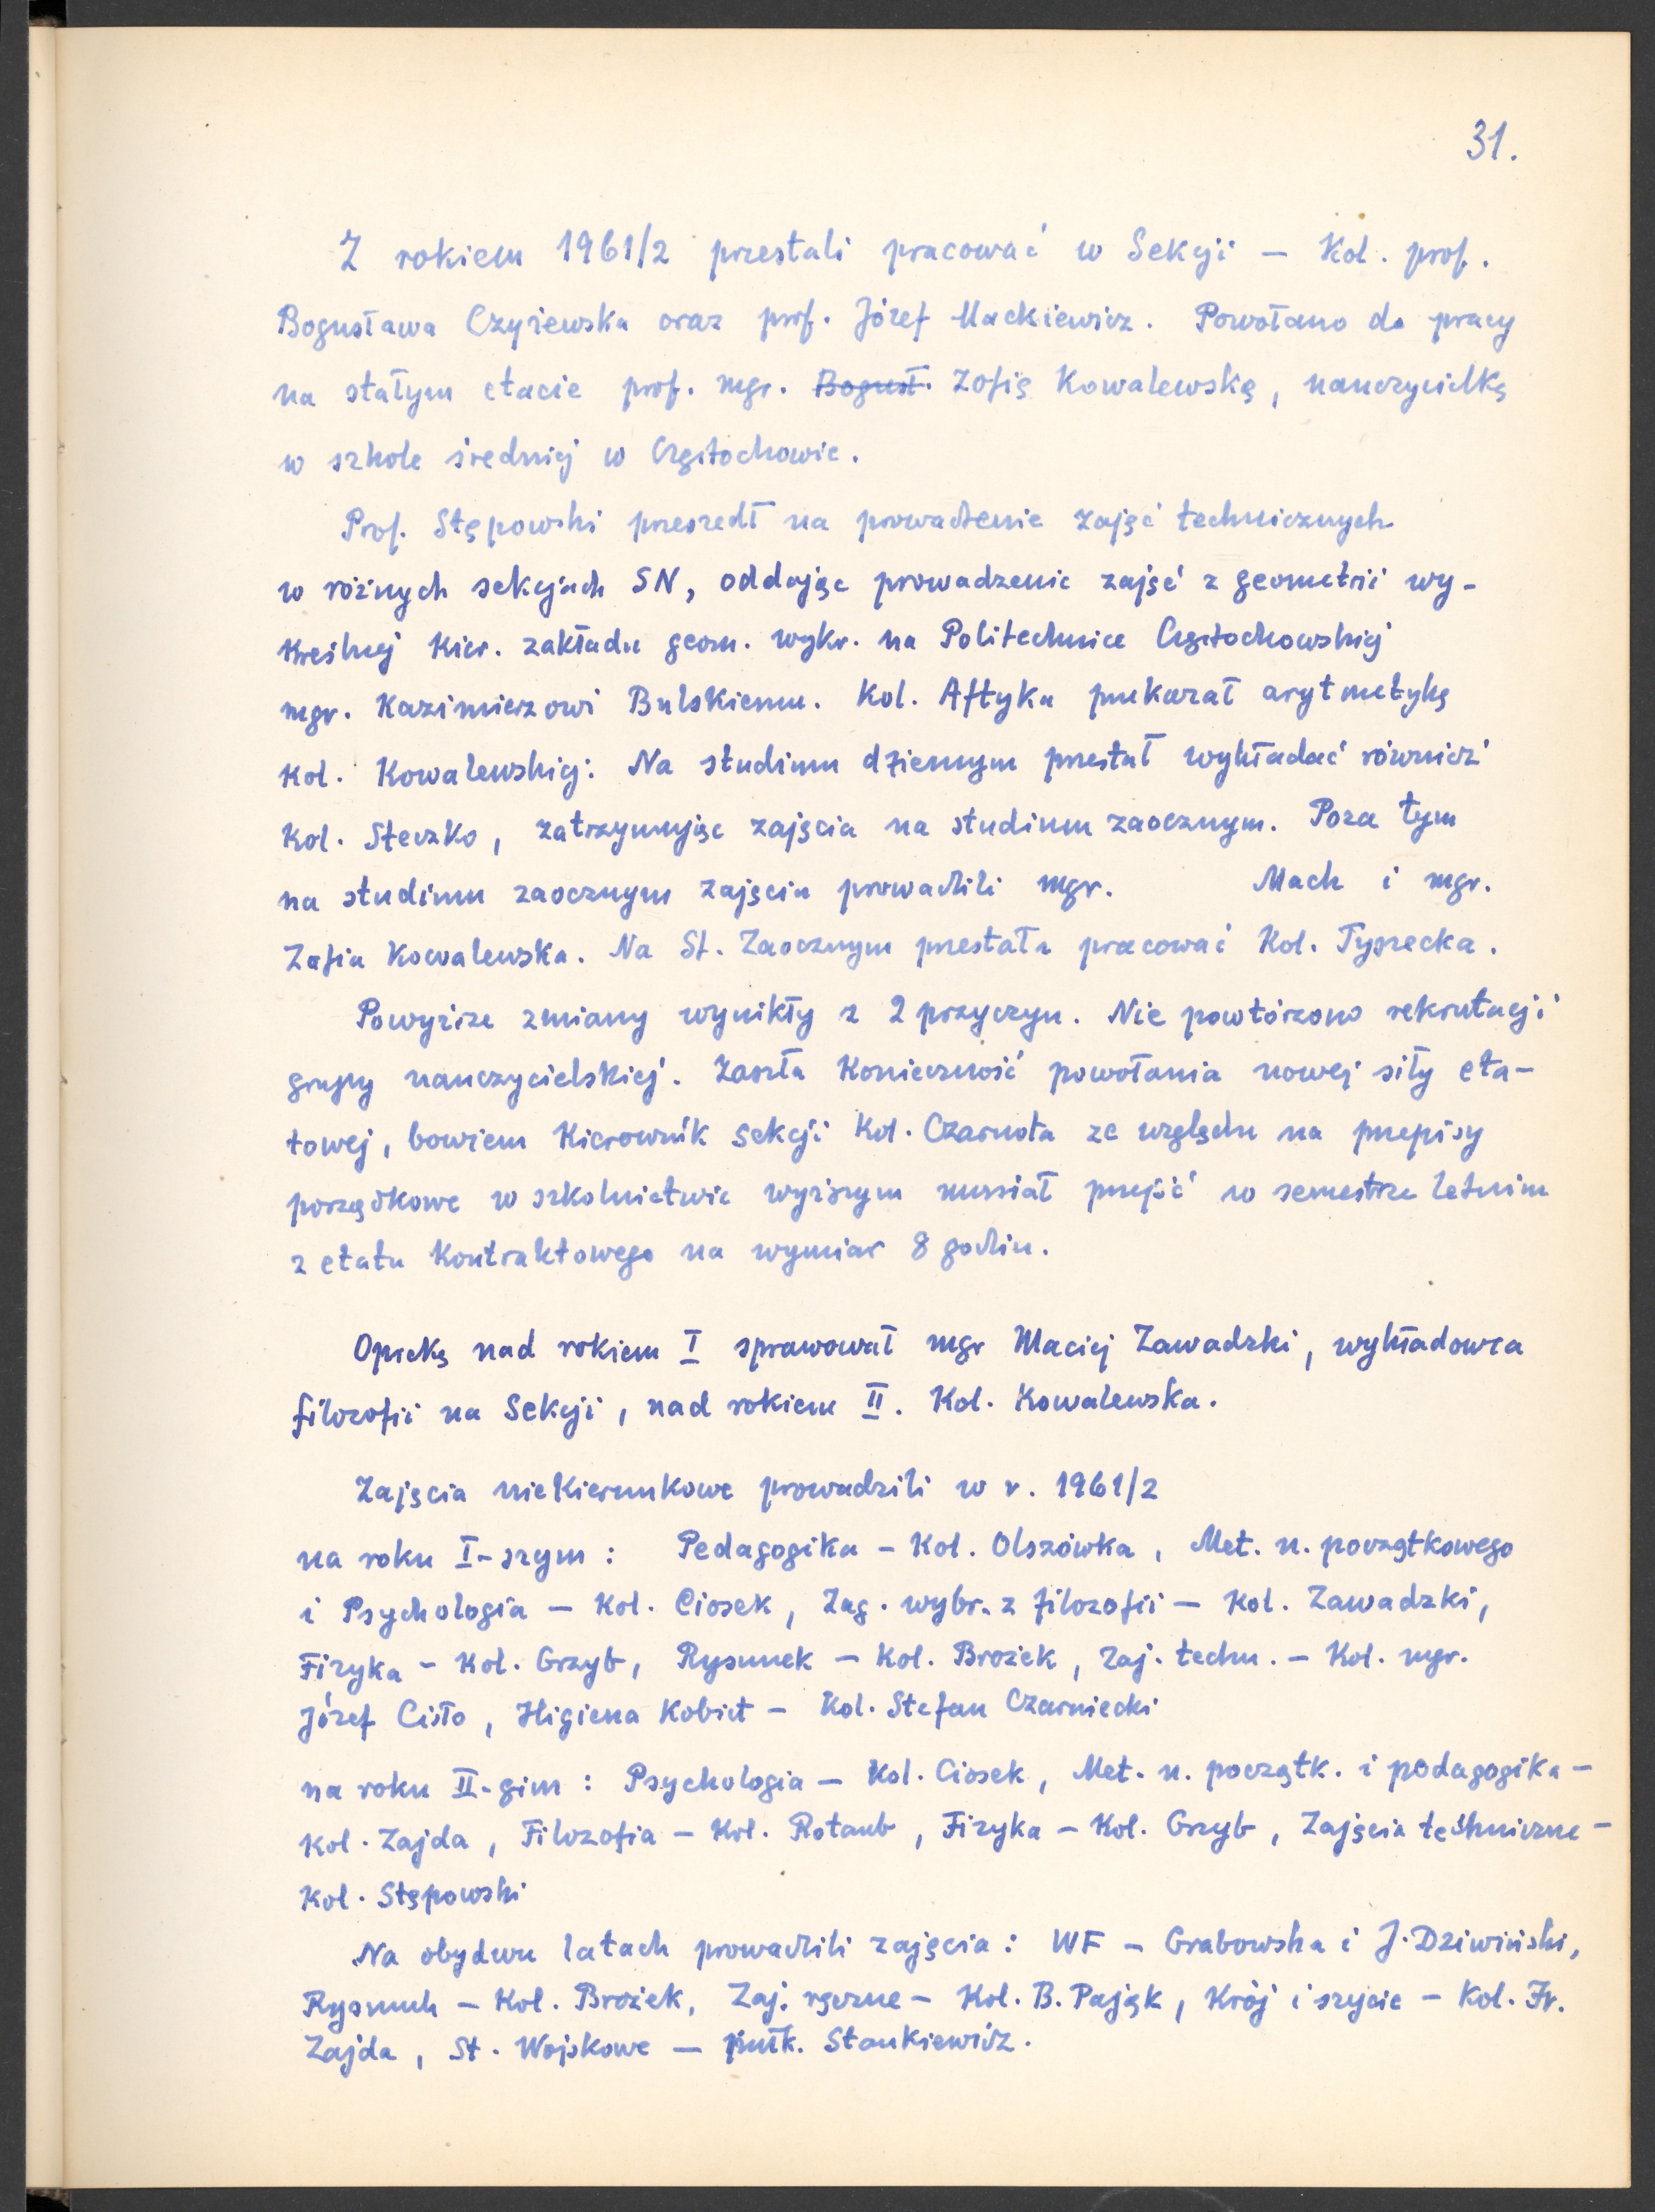 31.
Z rokiem 1961/2 przestali pracować w Sekcji – Kol. prof.
Bogusława Czyżewska oraz prof. Józef Mackiewicz. Powołano do pracy
na stałym etacie prof. mgr. Bogusł. Zofię Kowalewską, nauczycielkę
w szkole średniej w Częstochowie.
Prof. Stępowski przeszedł na prowadzenie zajęć technicznych
w różnych sekcjach SN, oddając prowadzenie zajęć z geometrii wy-
kreślnej kier. zakładu geom. wykr. na Politechnice Częstochowskiej
mgr. Kazimierzowi Bulskiemu. Kol. Aftyka przekazał arytmetykę
Kol. Kowalewskiej. Na studium dziennym przestał wykładać również
Kol. Steczko, zatrzymując zajęcia na studium zaocznym. Poza tym
na studium zaocznym zajęcia prowadzili mgr. Mach i mgr.
Zofia Kowalewska. Na St. Zaocznym przestała pracować Kol. Tyszecka.
Powyższe zmiany wynikły z 2 przyczyn. Nie powtórzono rekrutacji
grupy nauczycielskiej. Zaszła konieczność powołania nowej siły eta-
towej, bowiem Kierownik sekcji Kol. Czarnota ze względu na przepisy
porządkowe w szkolnictwie wyższym musiał przejść w semestrze letnim
z etatu kontraktowego na wymiar 8 godzin.
Opiekę nad rokiem I sprawował mgr Maciej Zawadzki, wykładowca
filozofii na Sekcji, nad rokiem II. Kol. Kowalewska.
Zajęcia niekierunkowe prowadzili w r. 1961/2
na roku I-szym : Pedagogika – Kol. Olszówka, Met. n. początkowego
i Psychologia – Kol. Ciosek, Zag. wybr. z filozofii – Kol. Zawadzki,
Fizyka – Kol. Grzyb, Rysunek – Kol. Brożek, Zaj. techn. – Kol. mgr.
Józef Cisło, Higiena Kobiet – Kol. Stefan Czarniecki
na roku II-gim : Psychologia – Kol. Ciosek, Met. n. początk. i pedagogika –
Kol. Zajda, Filozofia – Kol. Rotaub, Fizyka – Kol. Grzyb, Zajęcia techniczne –
Kol. Stępowski
Na obydwu latach prowadzili zajęcia : WF – Grabowska i J. Dziwiński,
Rysunek – Kol. Brożek, Zaj. ręczne – Kol. B. Pająk, Krój i szycie – Kol. Fr.
Zajda, St. Wojskowe – ppułk. Stankiewicz.